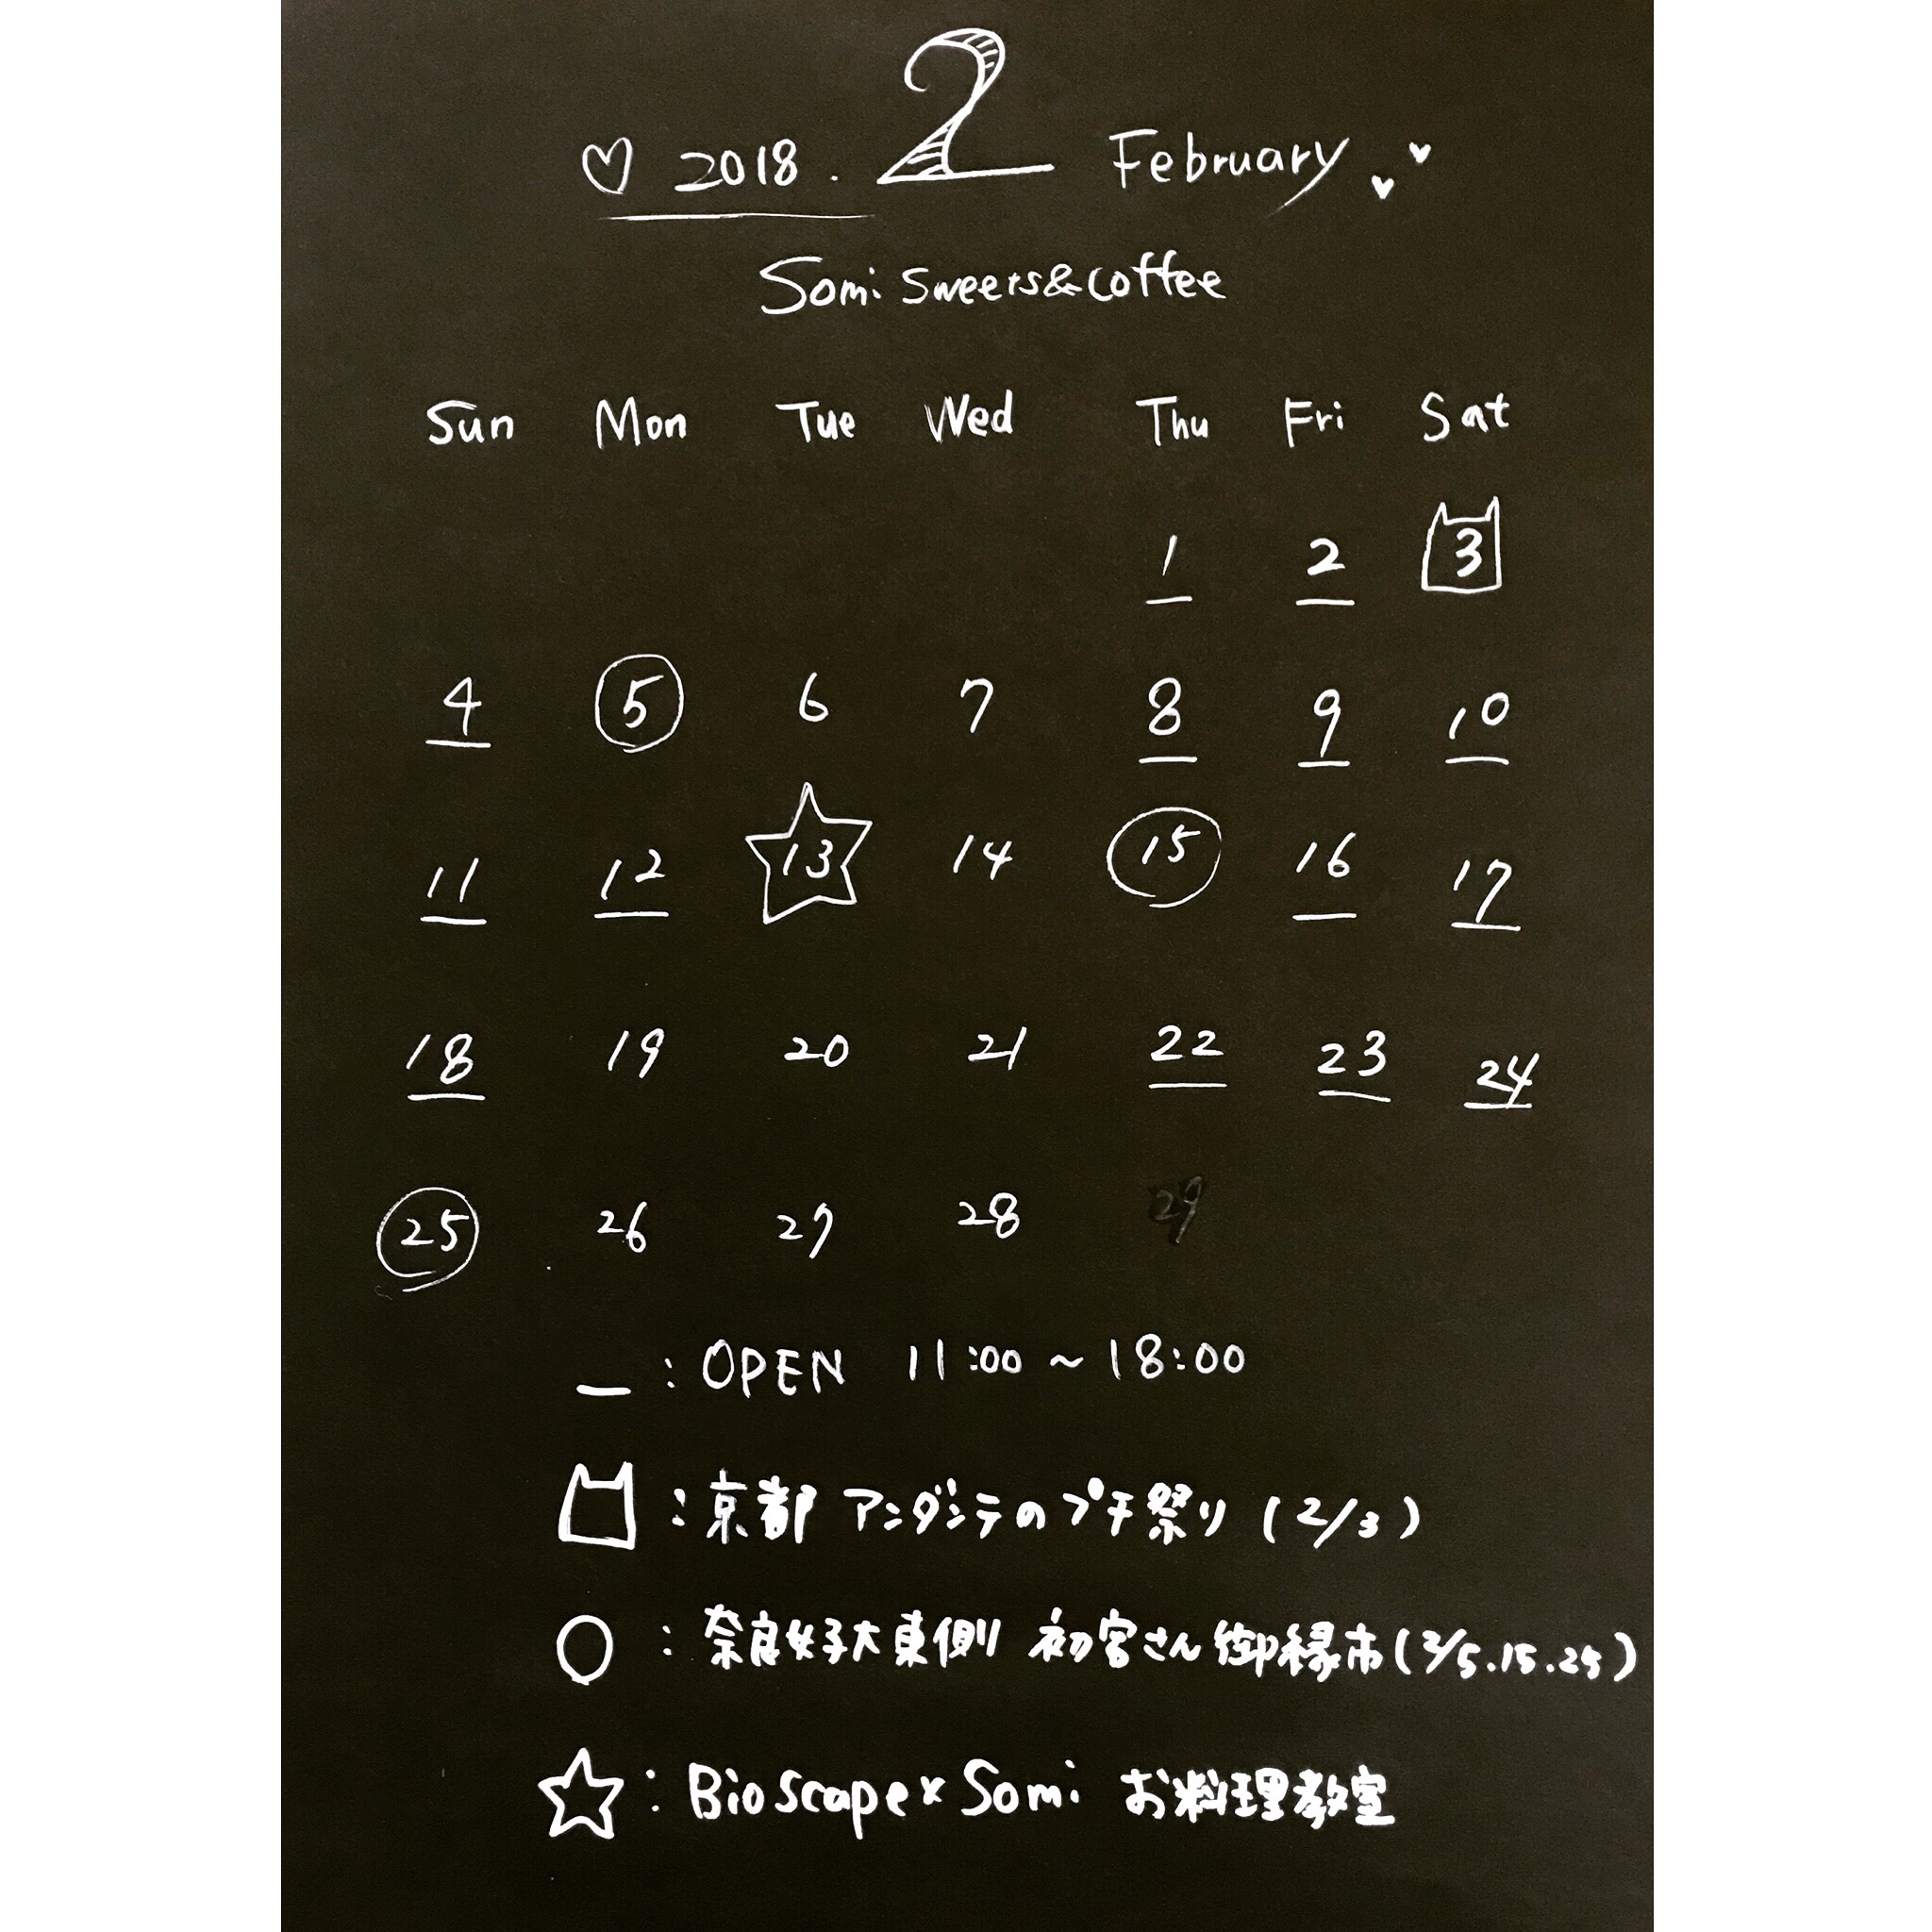 2018. 2 February
Somi Sweets&coffee
Sun Mon Tue Wed Thu Fri Sat
1 2 3
4 5 6 7 8 9 10
11 12 13 14 15 16 17
18 19 20 21 22 23 24
25 26 27 28 29
_ : OPEN 11:00 ~ 18:00
: 京都 アンダンテのプチ祭り (2/3)
○ : 奈良女子大東側 初宮さん 御縁市 (2/5.15.25)
☆ : Bioscape×Somi お料理教室